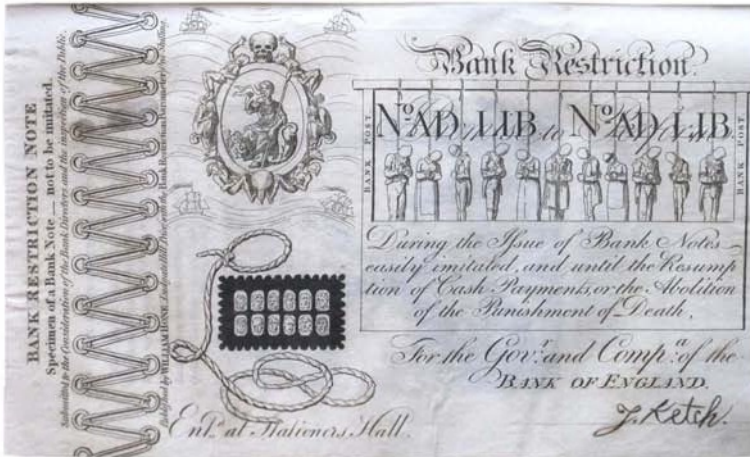 BANK RESTRICTION NOTE
Specimen of a Bank Note — not to be imitated.
Submitted to the Consideration of the Bank Directors and the inspection of the Public.
Bank Restriction.
BANK POST
No. AD. LIB to No. AD. LIB
BANK POST
During the Issue of Bank Notes
easily imitated, and until the Resump
tion of Cash Payments, or the Abolition
of the Punishment of Death,
For the Govr. and Compa. of the
BANK OF ENGLAND.
J. Ketch.
Entd. at Stationers Hall.